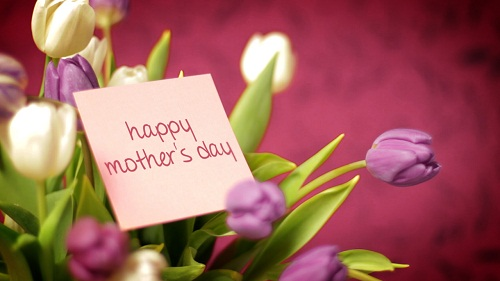 happy
mother's day